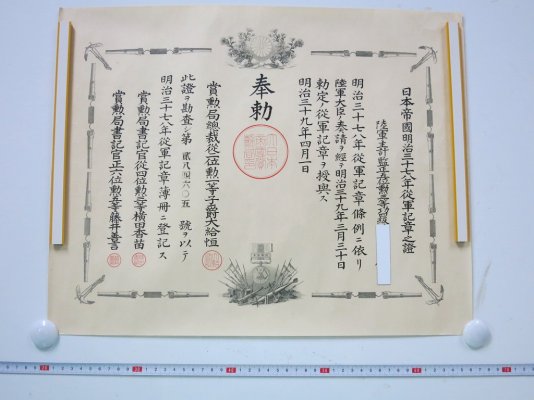 日本帝國明治三十七八年從軍記章之證
陸軍主計監正五位勲三等功四級
明治三十七八年從軍記章條例ニ依リ
陸軍大臣ノ奏請ヲ經テ明治三十九年三月三十日
勅定ノ從軍記章ヲ授與ス
明治三十九年四月一日
奉勅
賞勲局總裁從二位勲一等子爵大給恒
此證ヲ勘査シ第
號ヲ以テ
明治三十七八年從軍記章簿冊ニ登記ス
賞勲局書記官從四位勲三等横田香苗
賞勲局書記官正六位勲五等藤井善言